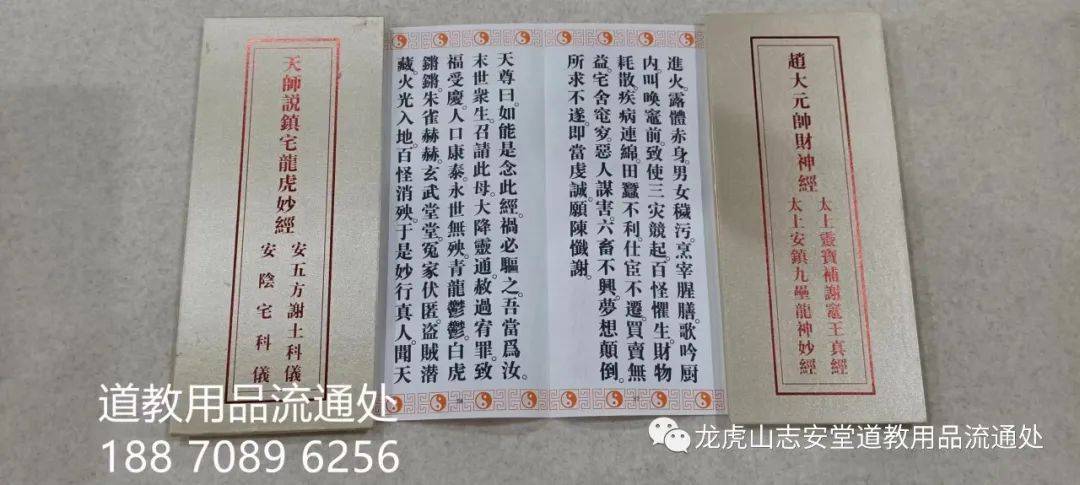 天師説鎮宅龍虎妙經
安五方謝土科儀
安陰宅科儀
進火。露體赤身。男女穢污。烹宰腥膳。歌吟厨
内。叫唤竈前。致使三灾競起。百怪懼生。財物
耗散。疾病連綿。田蠶不利。仕宦不遷。買賣無
益。宅舍窀穸。惡人謀害。六畜不興。夢想顛倒。
所求不遂。即當虔誠。願陳懺謝。
天尊曰。如能是念此經。禍必驅之。吾當爲汝。
末世衆生。召請此母。大降靈通。赦過宥罪。致
福受慶。人口康泰。永世無殃。青龍鬱鬱。白虎
鏘鏘。朱雀赫赫。玄武堂堂。冤家伏匿。盗賊潜
藏。火光入地。百怪消殃。于是妙行真人。聞天
趙大元帥財神經
太上靈寶補謝竈王真經
太上安鎮九壘龍神妙經
道教用品流通处
188 7089 6256
龙虎山志安堂道教用品流通处